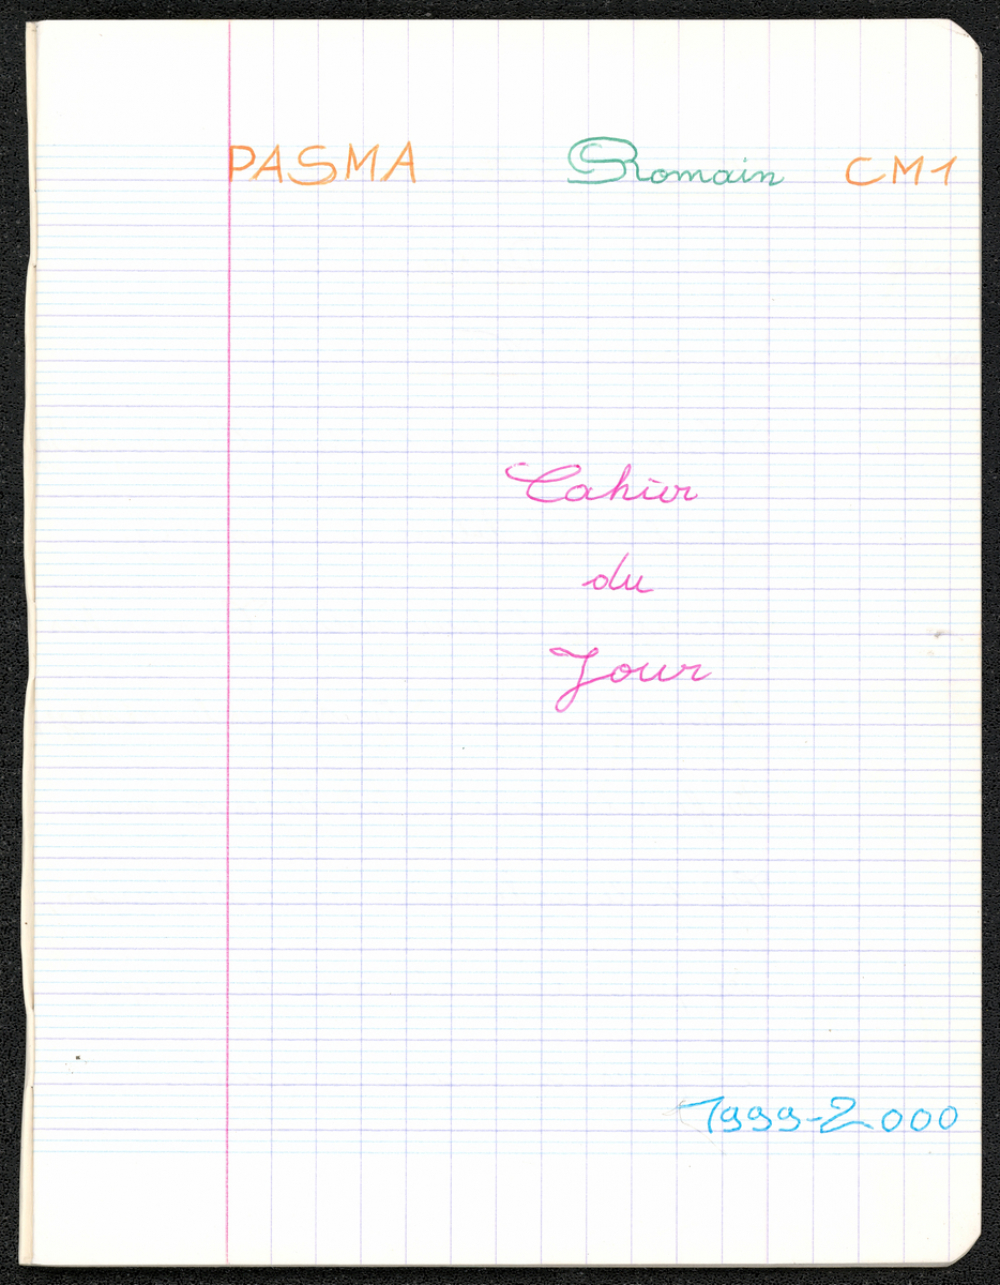 PASMA Romain CM1
Cahier
du
Jour
1999-2000